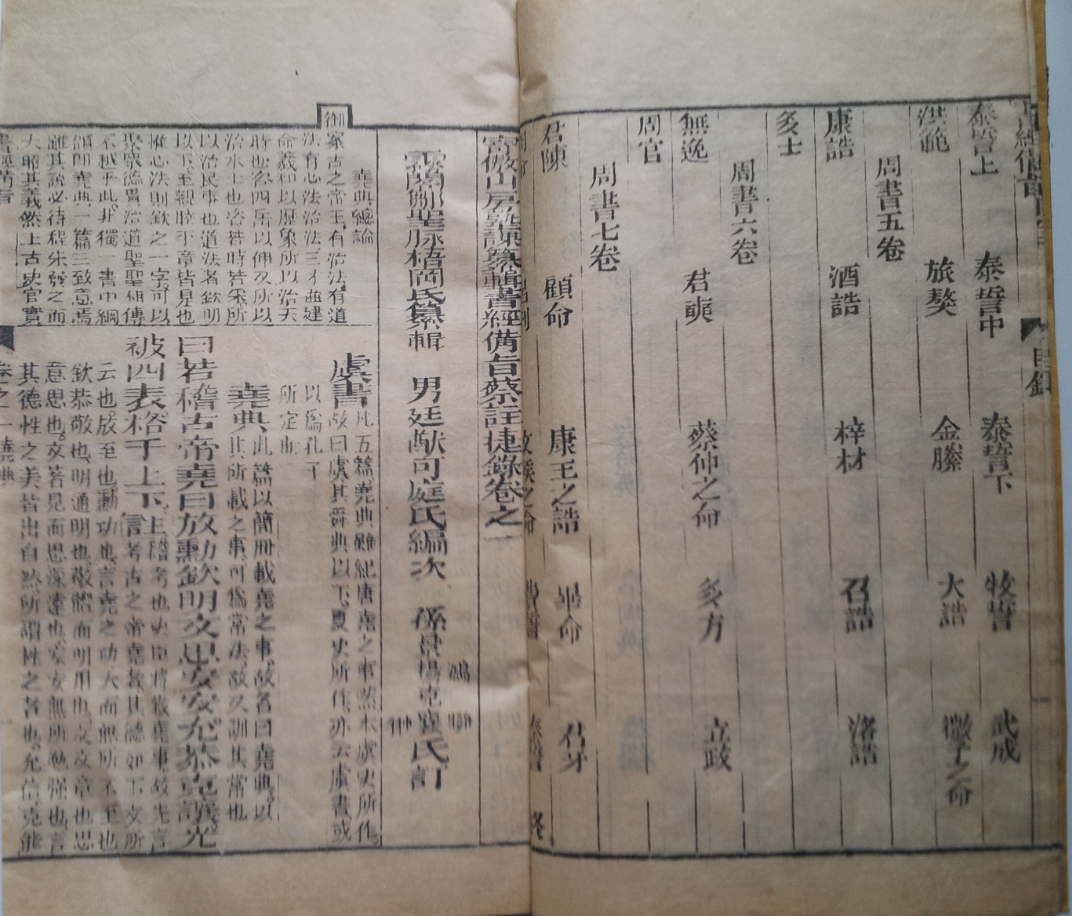 書經備旨目錄
泰誓上 泰誓中 泰誓下 牧誓 武成
洪範 旅獒 金縢 大誥 微子之命
周書五卷
康誥 酒誥 梓材 召誥 洛誥
多士
周書六卷
無逸 君奭 蔡仲之命 多方 立政
周官
周書七卷
君陳 顧命 康王之誥 畢命 君牙
呂刑 文侯之命 費誓 秦誓 終
目錄
書經備旨蔡註捷錄卷之一
鄒聖脉梧岡氏纂輯 男廷猷可庭氏編次 孫景揚克襄氏訂
堯典總論
古之帝王有治法有道
法有心法治法三才並建
命羲和以曆象所以治天
時也咨四岳以俾乂所以
治水土也咨若時若采所
以治民事也道法者欽明
以下至親睦平章皆是也
惟心法則欽之一字可以
聚衆德貫治道聖聖相傳
不越乎此非獨一書中綱
領即堯典一篇三致意焉
雖其說必待程朱發之而
大昭其義然上古史官實
虞書 凡五篇堯典雖紀唐堯之事然本虞史所作
故曰虞其舜典以下夏史所作亦云虞書或
以爲孔子
所定也
堯典 此篇以簡冊載堯之事故名曰堯典以
其所載之事可爲常法故又訓其常也
曰若稽古帝堯曰放勳欽明文思安安允恭克讓光
被四表格于上下
云也放至也勳功也言堯之功大而無所不至也
欽恭敬也明通明也敬體而明用也文文章也思
意思也文著見而思深遠也安安無所勉强也言
其德性之美皆出自然所謂性之者也允信克能
卷之一堯典